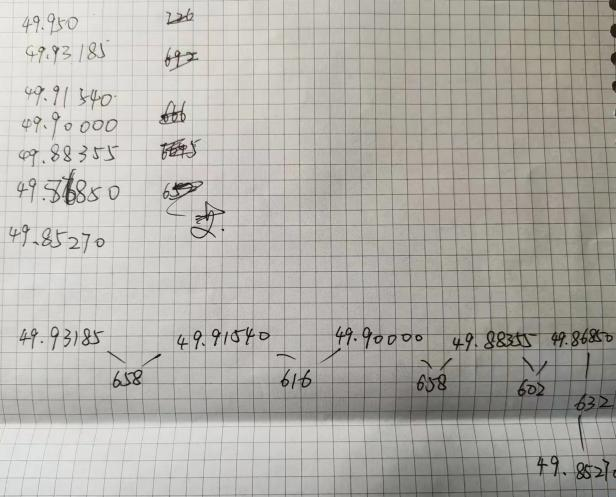 49.950 226
49.93185 692
49.91540
49.90000 666
49.88355
49.86850
49.85270
49.93185 49.91540 49.90000 49.88355 49.86850
658 616 658 602 632
49.85270